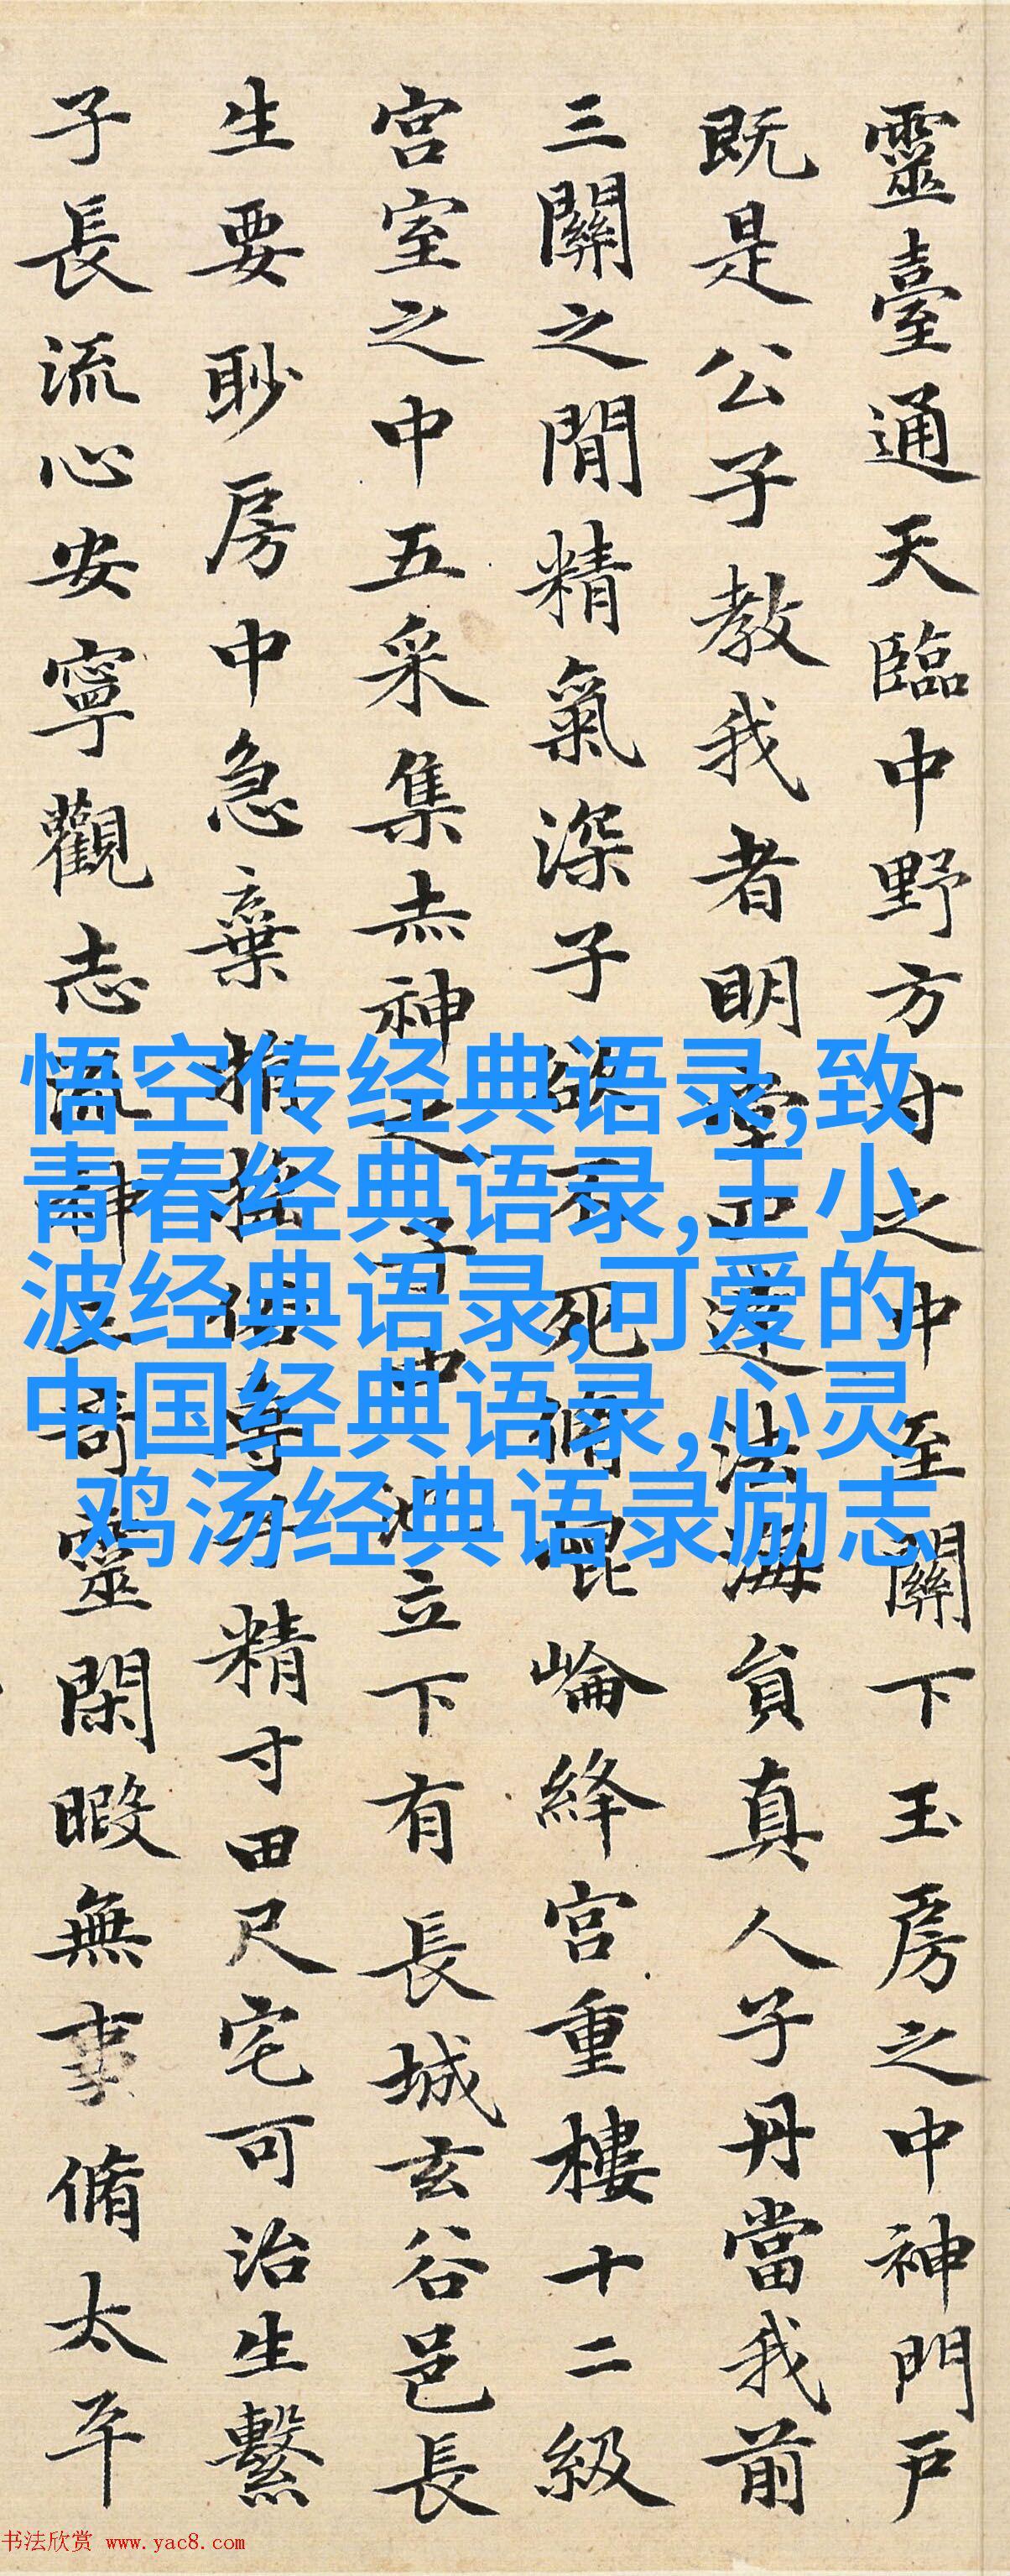 靈臺通天臨中野方寸之中至關下玉房之中神門戶
既是公子教我者明堂四達法海員真人子丹當我前
三關之閒精氣深子欲不死脩崑崙絳宮重樓十二級
宮室之中五采集赤神之子中池立下有長城玄谷邑長
生要眇房中急棄捐搖俗專子精寸田尺宅可治生繫
子長流心安寧觀志流神三奇靈閑暇無事脩太平
悟空传经典语录,致
青春经典语录,王小
波经典语录,可爱的
中国经典语录,心灵
鸡汤经典语录励志
书法欣赏 www.yac8.com